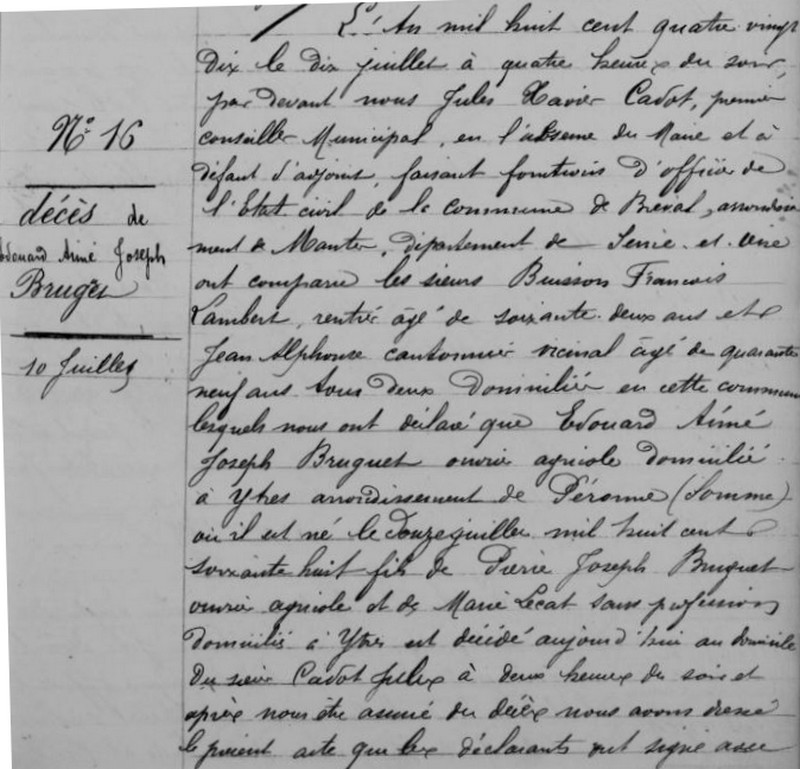 N° 16
décès de
Edouard Aimé Joseph
Bruguet
10 Juillet
L'An mil huit cent quatre vingt
dix le dix juillet à quatre heures du soir,
par devant nous Jules Xavier Cadot, premier
conseiller Municipal, en l'absence du Maire et à
défaut d'adjoint, faisant fonctions d'officier de
l'Etat civil de la commune de Breval, arrondisse
ment de Mantes, département de Seine-et-Oise
ont comparu les sieurs Buisson François
Lambert, rentier âgé de soixante-deux ans et
Jean Alphonse cantonnier vicinal âgé de quarante
neuf ans tous deux domiciliés en cette commune
lesquels nous ont déclaré que Edouard Aimé
Joseph Bruguet ouvrier agricole domicilié
à Ytres arrondissement de Péronne (Somme)
où il est né le douze juillet mil huit cent
soixante huit fils de Pierre Joseph Bruguet
ouvrier agricole et de Marie Lecat sans profession
domiciliés à Ytres est décédé aujourd'hui au domicile
du sieur Cadot Jules à deux heures du soir et
après nous être assuré du décès nous avons dressé
le présent acte que les déclarants ont signé avec